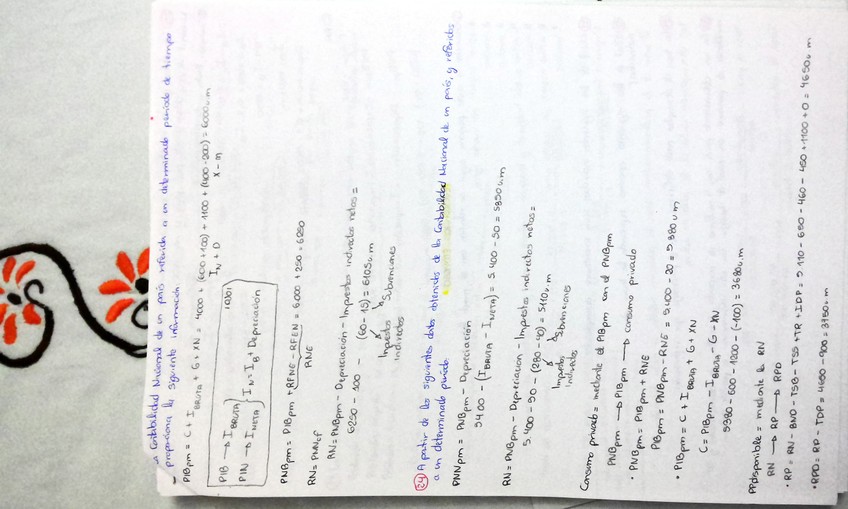 → Contabilidad Nacional de un país referida a un determinado período de tiempo
- proporciona la siguiente información
PIBpm = C + I BRUTA + G + XN = 4000 + (600+100) + 1100 + (400-200) = 6000 u.m
IN + D
X - m
PIB → I BRUTA
PIN → I NETA } IN + IB + Depreciación
¡OJO!
PNBpm = PIBpm + RFNE - RFEN = 6.000 + 250 = 6250
RNE
RN = PNNcf
RN = PNBpm - Depreciación - Impuestos indirectos netos =
6250 - 100 - (60 - 15) = 6105 u.m
Impuestos indirectos
Subvenciones
(24) A partir de los siguientes datos obtenidos de la Contabilidad Nacional de un país, y referidos
a un determinado período.
PNNpm = PNBpm - Depreciación
5400 - (I BRUTA - I NETA) = 5.400 - 50 = 5350 u.m
RN = PNBpm - Depreciacion - Impuestos indirectos netos =
5.400 - 50 - (280 - 40) = 5110 u.m
Impuestos indirectos
Subvenciones
Consumo privado = mediante el PIBpm con el PNBpm
PNBpm → PIBpm → consumo privado
· PNBpm = PIBpm + RNE
PIBpm = PNBpm - RNE = 5,400 - 20 = 5380 u m
· PIBpm = C + I BRUTA + G + XN
C = PIBpm - I BRUTA - G - XN
5380 - 600 - 1200 - (-100) = 3680 u. m
RPdisponible = mediante la RN
RN → RP → RPD
· RP = RN - BND - TSB - TSS + TR + IDP = 5.110 - 650 - 460 - 450 + 1100 + 0 = 4650 u m
· RPD = RP - TDP = 4650 - 900 = 3750 u m